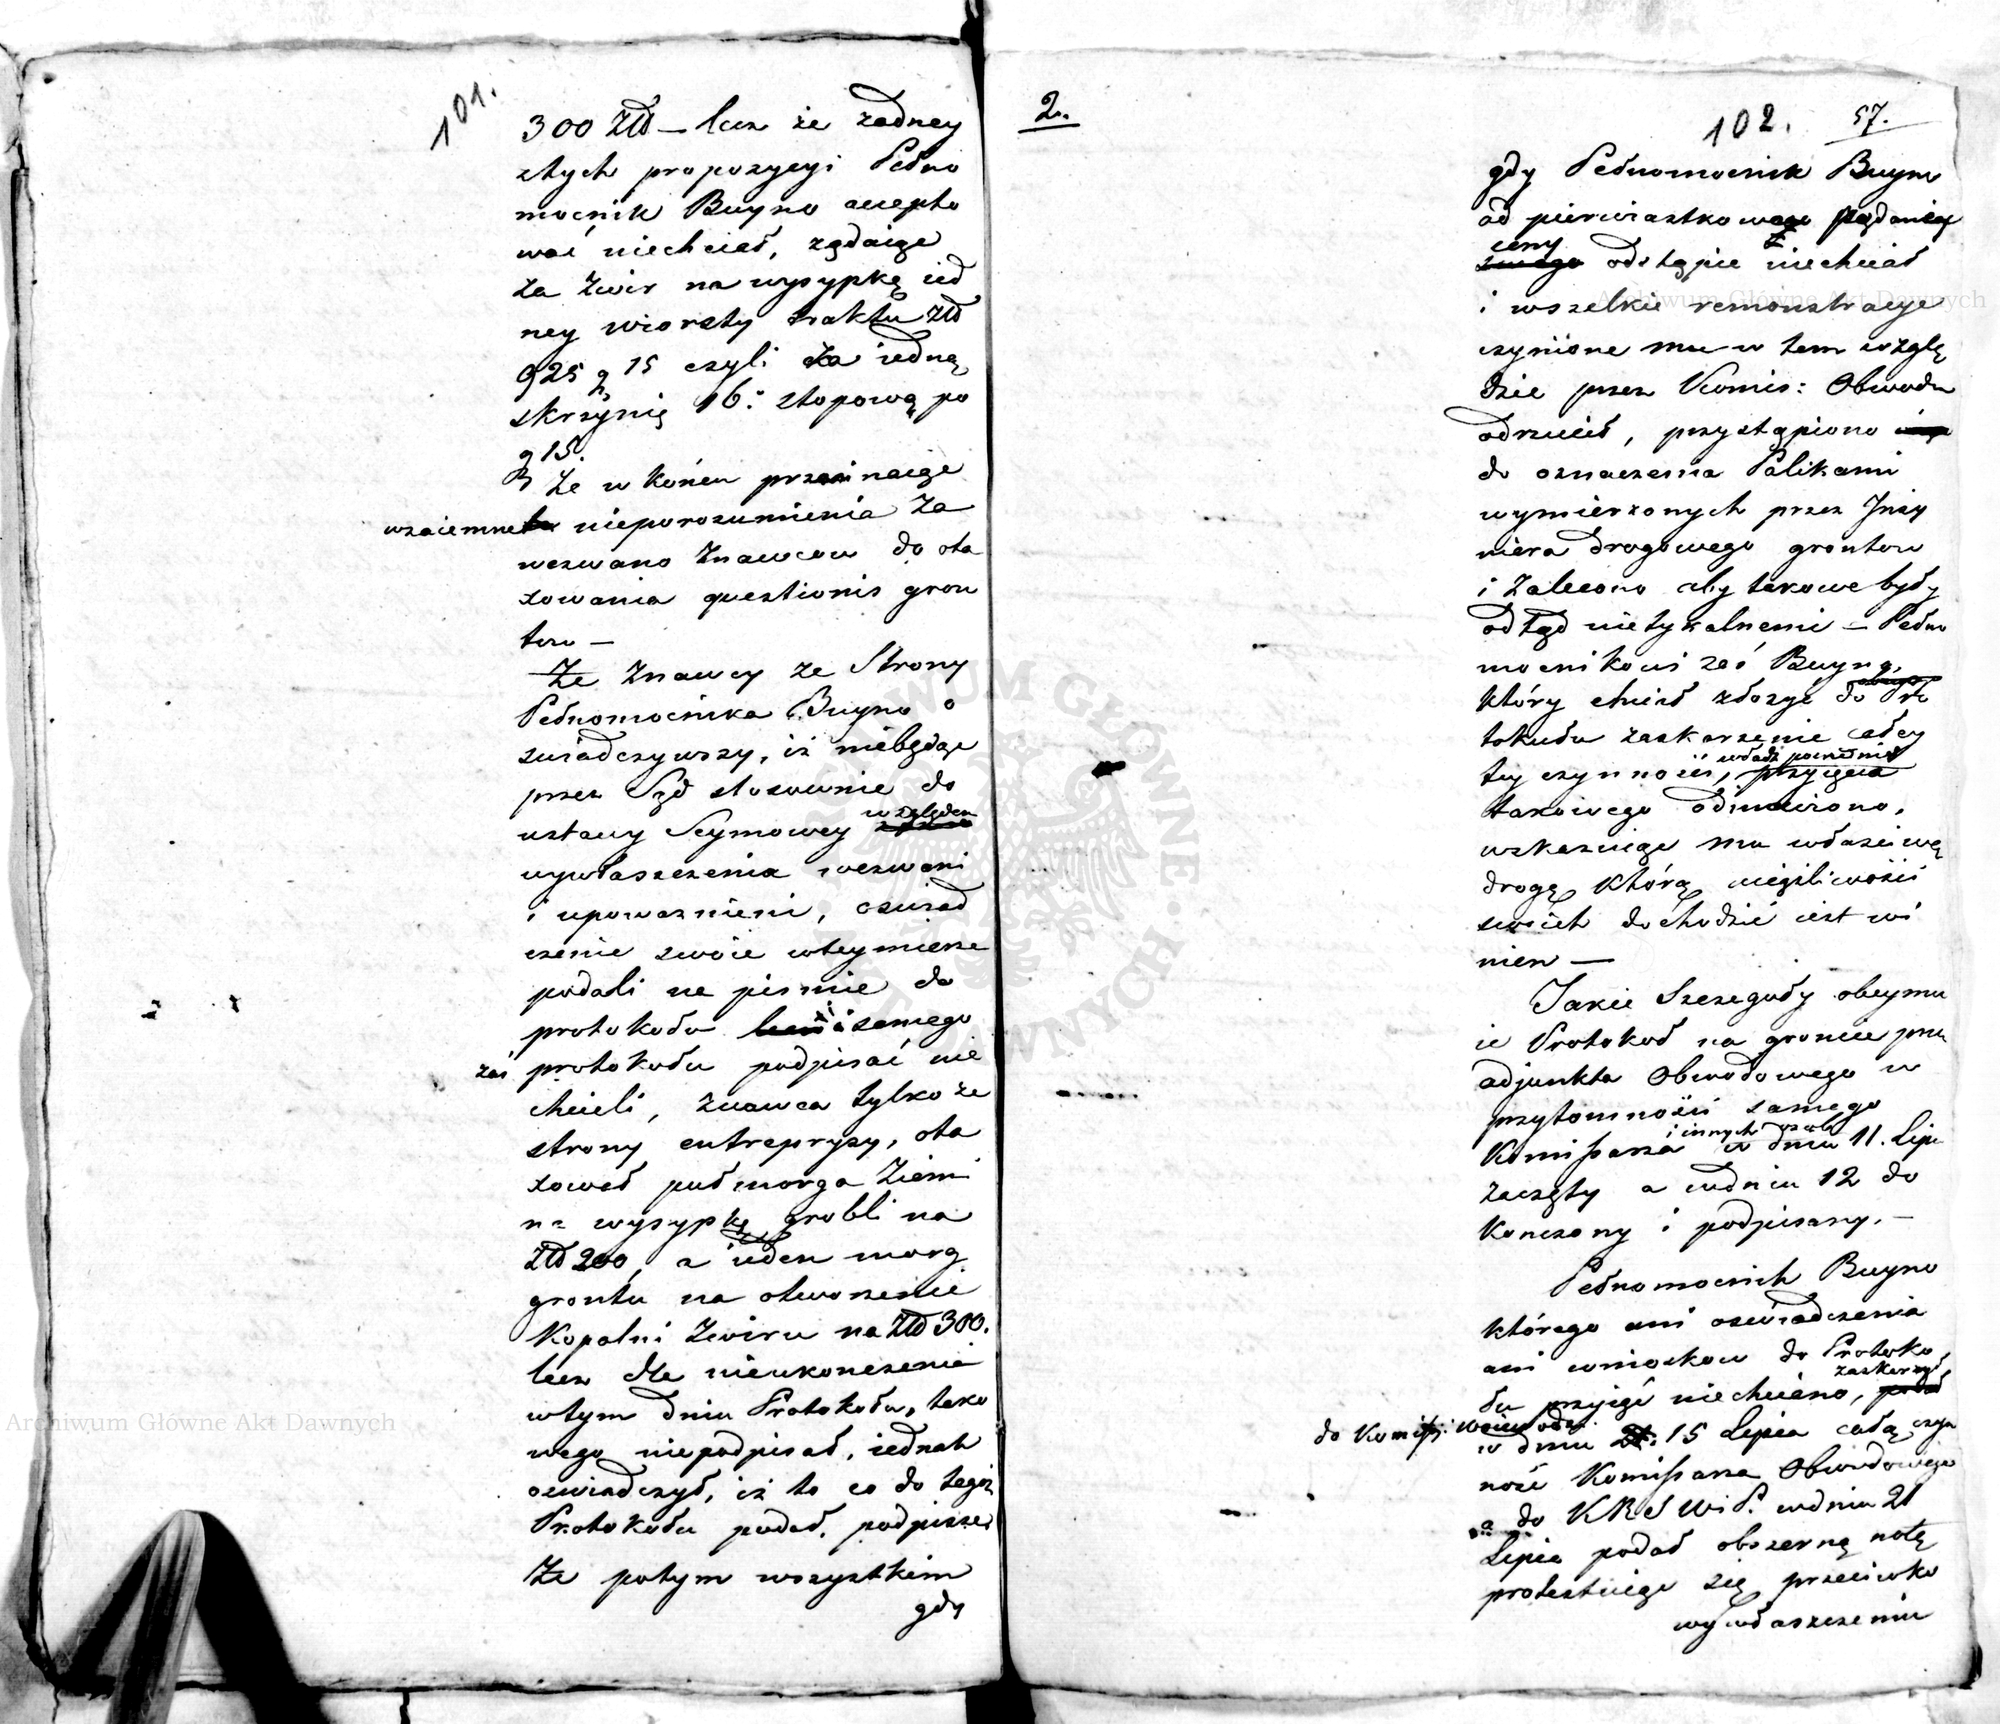 101.
300 Złł — lecz że żadney
ztych propozycyi Pełno
mocnik Buyno accepto
wać niechciał, żądaiąc
za Żwir na wysypkę ied
ney wiorsty traktu Złł
925 g 15 czyli za iedną
skrzynię 16: stopową po
g 15.
Że w końcu przecinaiąc
wzaiemne nieporozumienia za
wezwano Znawcow do ota
xowania questionis gron
tow —
Że Znawcy ze Strony
Pełnomocnika Buyno o
swiadczywszy, iż niebędąc
przez Sąd stosownie do
ustawy Seymowey względem
wywłaszczenia wezwani
i upoważnieni, oswiad
czenie swoie wteymierze
podali na pismie do
protokołu samego
zaś protokołu podpisać nie
chcieli, znawca tylko ze
strony entrepryzy, ota
xował puł morga Ziemi
na wysypkę grobli na
Złł 200, a ieden morg
grontu na otworzenie
Kopalni Żwiru na Złł 300.
lecz dla nieukonczenia
wtym dniu Protokołu, tako
wego niepodpisał, iednak
oswiadczył, iż to co do tegoż
Protokołu podał, podpisze.
Że potym wszystkim
gdy
2.
102. 57.
gdy Pełnomocnik Buyno
od pierwiastkowego żądania
ceny odstąpić niechciał
i wszelkie remonstracye
czynione mu w tem wzglę
dzie przez Komis: Obwodu
odrzucił, przystąpiono
do oznaczenia Palikami
wymierzonych przez Jnży
niera drogowego grontow
i zalecono aby takowe były
odtąd nietykalnemi — Pełno
mocnikowi zaś Buyno,
który chciał złożyć do Pro
tokułu zaskarżenie całey
tey czynności, przyjęcia
takowego odmowiono,
wskazuiąc mu właściwą
drogę którą
swoich dochodzić iest wi
nien —
Jakie Szczeguły obeymu
ie Protokoł na groncie prze
adjunkta Obwodowego w
przytomności samego
i innych osob
Komissarza w dniu 11. Lip
zaczęty a wdniu 12 do
konczony i podpisany. —
Pełnomocnik Buyno
którego ani oswiadczenia
ani wniosków do Protoko,
zaskarżył
łu przyiąć niechciano,
do Komiss: Woiewodz:
w dniu 15 Lipca całą czyn
ność Komissarza Obwodowego
a do KRSWiP. wdniu 21
Lipca podał obszerną notę
protestuiąc się przeciwko
wywłaszczeniu
Archiwum Główne Akt Dawnych